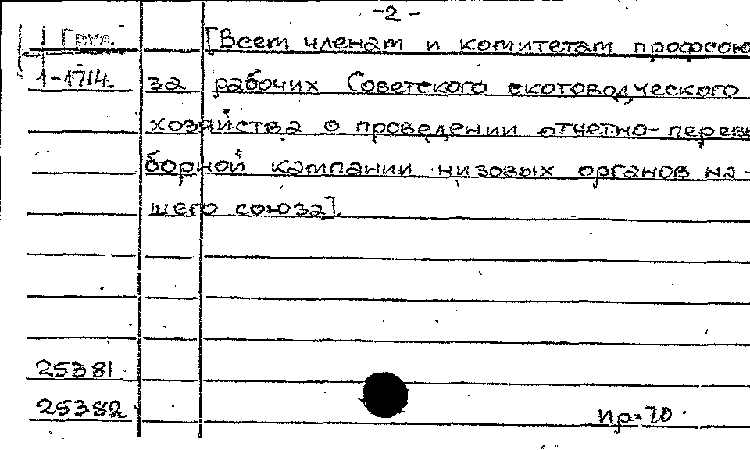 -2-
Груп. [Всем членам и комитетам профсою
1-1714. за рабочих Советского скотоводческого
хозяйства о проведении отчетно-перевы
борной кампании низовых органов на-
шего союза].
25381
25382 Пр-70